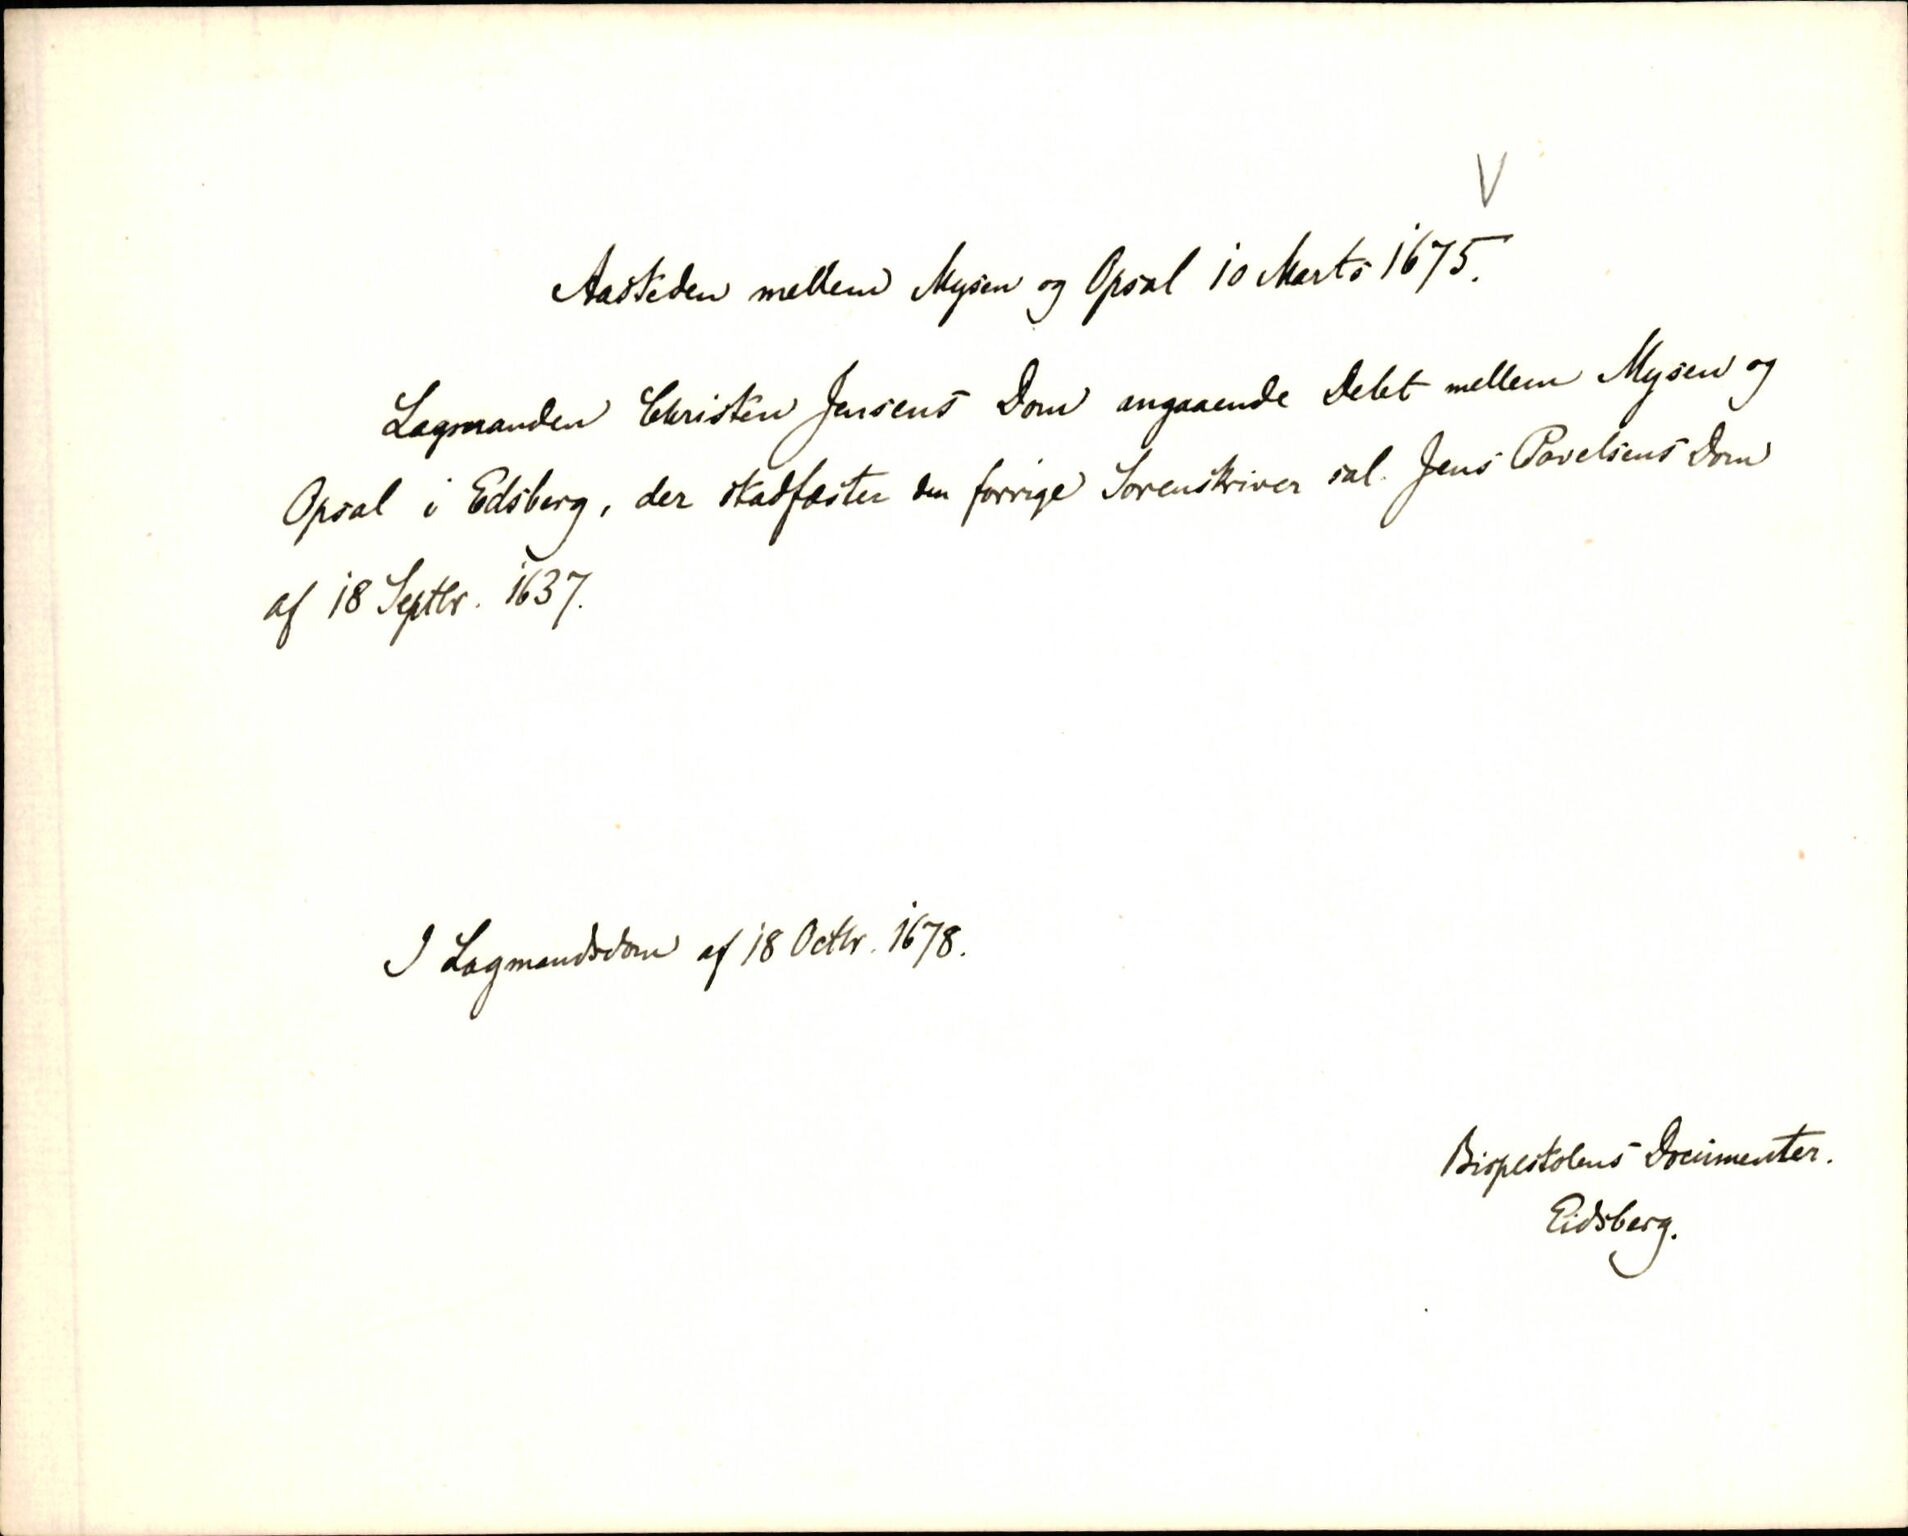 V
Aasteden mellem Mysen og Opsal 10 Marts 1675.
Lagmanden Christen Jensens Dom angaaende Delet mellem Mysen og
Opsal i Edsberg, der stadfæster den forrige Sorenskriver sal. Jens Povelsens Dom
af 18 Septbr. 1637.
I Lagmandsdom af 18 Octbr. 1678.
Bispestolens Documenter.
Eidsberg.